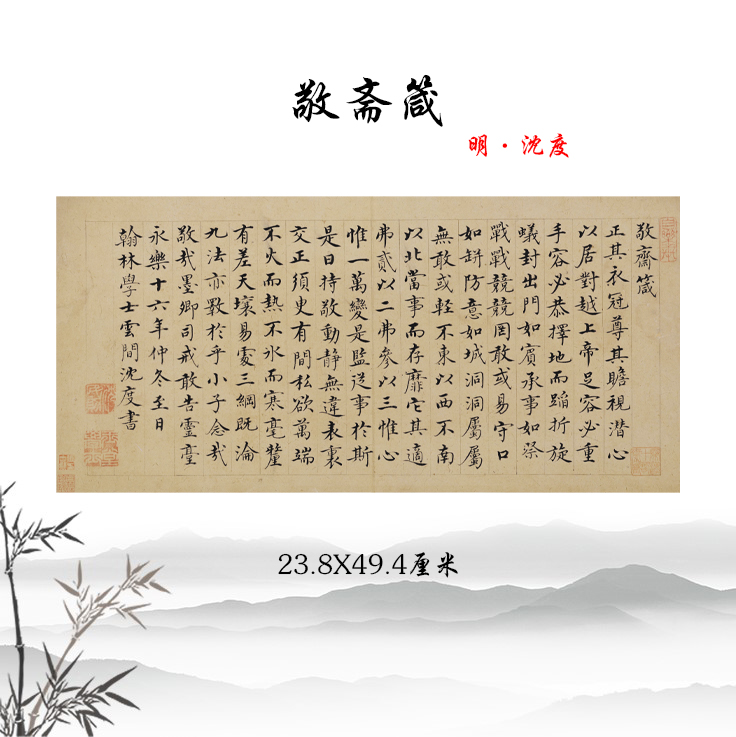 敬斋箴
明·沈度
敬齋箴
正其衣冠尊其瞻視潜心
以居對越上帝足容必重
手容必恭擇地而蹈折旋
蟻封出門如賓承事如祭
戰戰兢兢罔敢或易守口
如缾防意如城洞洞屬屬
無敢或輕不東以西不南
以北當事而存靡它其適
弗貳以二弗參以三惟心
惟一萬變是監從事於斯
是曰持敬動靜無違表裏
交正須臾有間私欲萬端
不火而熱不氷而寒毫釐
有差天壤易處三綱既淪
九法亦斁於乎小子念哉
敬哉墨卿司戒敢告靈臺
永樂十六年仲冬至日
翰林學士雲間沈度書
23.8X49.4厘米